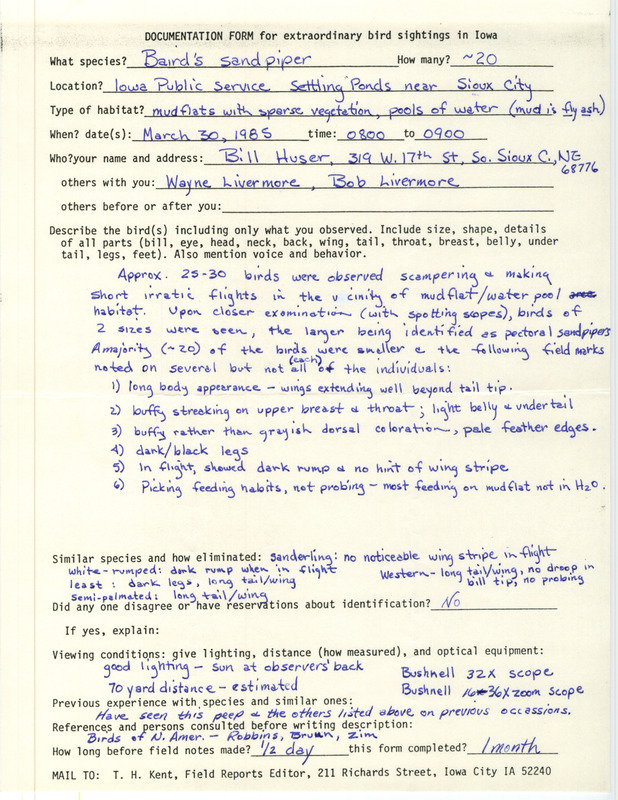 DOCUMENTATION FORM for extraordinary bird sightings in Iowa
What species? Baird's sandpiper How many? ~20
Location? Iowa Public Service Settling Ponds near Sioux City
Type of habitat? mudflats with sparse vegetation, pools of water (mud is fly ash)
When? date(s): March 30, 1985 time: 0800 to 0900
Who?your name and address: Bill Huser, 319 W. 17th St, So. Sioux C., NE
68776
others with you: Wayne Livermore, Bob Livermore
others before or after you:
Describe the bird(s) including only what you observed. Include size, shape, details
of all parts (bill, eye, head, neck, back, wing, tail, throat, breast, belly, under
tail, legs, feet). Also mention voice and behavior.
Approx. 25-30 birds were observed scampering & making
short irratic flights in the vicinity of mudflat/water pool area
habitat. Upon closer examination (with spotting scopes), birds of
2 sizes were seen, the larger being identified as pectoral sandpipers
A majority (~20) of the birds were smaller & the following field marks
noted on several but not all (each) of the individuals:
1) long body appearance - wings extending well beyond tail tip.
2) buffy streaking on upper breast & throat; light belly & undertail
3) buffy rather than grayish dorsal coloration, pale feather edges.
4) dark/black legs
5) In flight, showed dark rump & no hint of wing stripe
6) Picking feeding habits, not probing - most feeding on mudflat not in H2O.
Similar species and how eliminated: Sanderling: no noticeable wing stripe in flight
white-rumped: dark rump when in flight Western - long tail/wing, no droop in
least: dark legs, long tail/wing bill tip, no probing
semi-palmated: long tail/wing
Did any one disagree or have reservations about identification? No
If yes, explain:
Viewing conditions: give lighting, distance (how measured), and optical equipment:
good lighting - sun at observers' back Bushnell 32X scope
70 yard distance - estimated Bushnell 16-36X zoom scope
Previous experience with species and similar ones:
Have seen this peep & the others listed above on previous occassions.
References and persons consulted before writing description:
Birds of N. Amer. - Robbins, Bruun, Zim
How long before field notes made? 1/2 day this form completed? 1 month
MAIL TO: T. H. Kent, Field Reports Editor, 211 Richards Street, Iowa City IA 52240